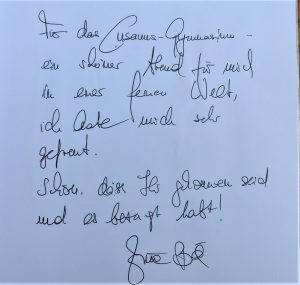 Für das Cusanus-Gymnasium -
ein schöner Abend für mich
in einer fernen Welt,
ich habe mich sehr
gefreut.
Schön, dass Ihr gekommen seid
und es besorgt habt!